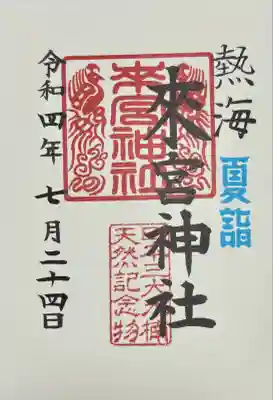 熱海
夏詣
來宮神社
來宮神社
天然記念物
令和四年 七月二十四日